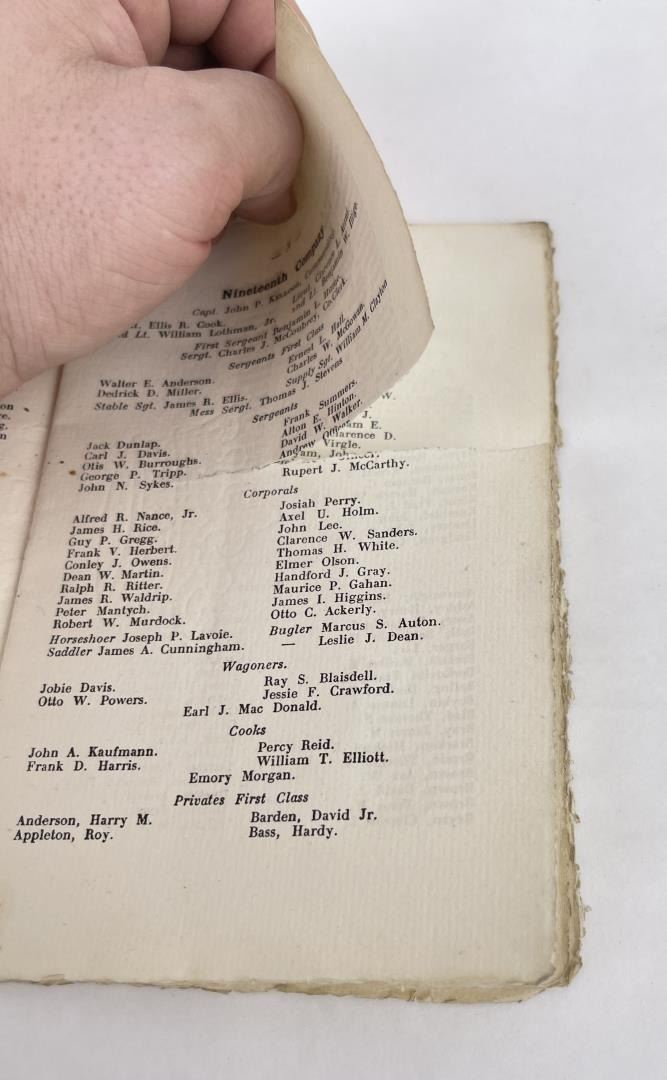 Nineteenth Company
Capt. John P.
Ellis R. Cook. Lieut. Clarence L.
Lt. William Lothman, Jr. 2nd Lt. Benjamin W.
First Sergeant Benjamin L.
Sergt. Charles J. McCoubrey, Co. Clerk.
Sergeants First Class
Walter E. Anderson. Ernest L. Hall.
Dedrick D. Miller. Charles W. McGowan.
Stable Sgt. James R. Ellis. Supply Sgt. William M. Clayton
Mess Sergt. Thomas J. Stevens
Sergeants
Jack Dunlap. Frank Summers.
Carl J. Davis. Alton E. Hinton.
Otis W. Burroughs. David W. Walker.
George P. Tripp. Andrew Virgle.
John N. Sykes. Rupert J. McCarthy.
Corporals
Alfred R. Nance, Jr. Josiah Perry.
James H. Rice. Axel U. Holm.
Guy P. Gregg. John Lee.
Frank V. Herbert. Clarence W. Sanders.
Conley J. Owens. Thomas H. White.
Dean W. Martin. Elmer Olson.
Ralph R. Ritter. Handford J. Gray.
James R. Waldrip. Maurice P. Gahan.
Peter Mantych. James I. Higgins.
Robert W. Murdock. Otto C. Ackerly.
Horseshoer Joseph P. Lavoie. Bugler Marcus S. Auton.
Saddler James A. Cunningham. — Leslie J. Dean.
Wagoners.
Jobie Davis. Ray S. Blaisdell.
Otto W. Powers. Jessie F. Crawford.
Earl J. Mac Donald.
Cooks
John A. Kaufmann. Percy Reid.
Frank D. Harris. William T. Elliott.
Emory Morgan.
Privates First Class
Anderson, Harry M. Barden, David Jr.
Appleton, Roy. Bass, Hardy.